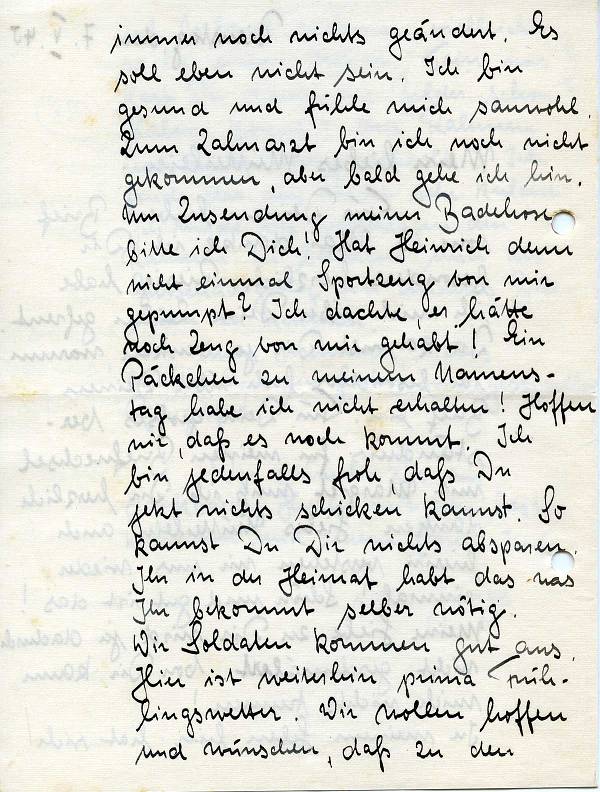 immer noch nichts geändert. Es
soll eben nicht sein. Ich bin
gesund und fühle mich sauwohl.
Zum Zahnarzt bin ich noch nicht
gekommen, aber bald gehe ich hin.
Um Zusendung meiner Badehose
bitte ich Dich! Hat Heinrich denn
nicht einmal Sportzeug von mir
gepumpt? Ich dachte, er hätte
noch Zeug von mir gehabt! Ein
Päckchen zu meinem Namens-
tag habe ich nicht erhalten! Hoffen
wir, daß es noch kommt. Ich
bin jedenfalls froh daß Du
jetzt nichts schicken kannst. So
kannst Du Dir nichts absparen.
Ihr in der Heimat habt das was
Ihr bekommt selber nötig.
Wir Soldaten kommen gut aus.
Hier ist weiterhin prima Früh-
lingswetter. Wir wollen hoffen
und wünschen, daß zu den